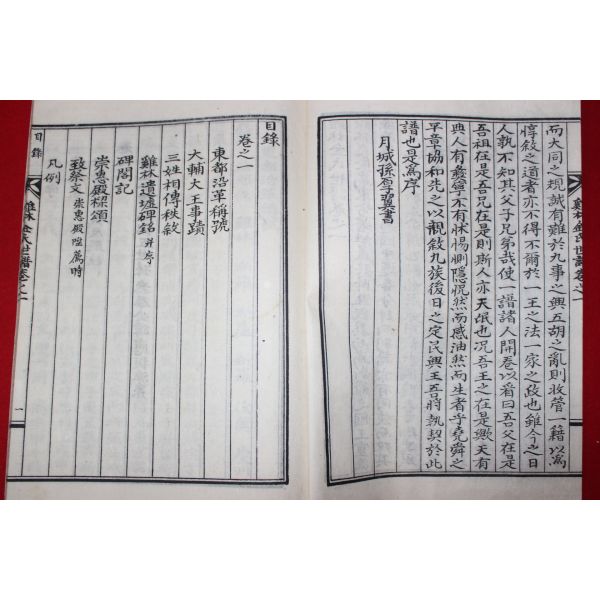 而大同之規誠有難於九事之興五胡之亂則收管一籍以寫
惇敘之道者亦不得不爾於一王之法一家之政也雖今之日
人孰不知其父子兄弟哉使一譜諸人開卷以看曰吾父在是
吾祖在是吾兄在是則斯人亦天氓也况吾王之在是歟天有
典人有彛寧不有怵惕惻隱怳然而感油然而生者乎堯舜之
平章協和先之以親敘九族後日之定民興王吾時執契於此
譜也是爲序
月城孫厚翼書
雞林金氏世譜卷之一
目錄
卷之一
東都沿革稱號
大輔大王事蹟
三姓相傳秩敘
雞林遺墟碑銘 并序
碑閣記
崇惠殿樑頌
致祭文 崇惠殿陞薦時
凡例
雞林金氏世譜卷之一
目錄
一